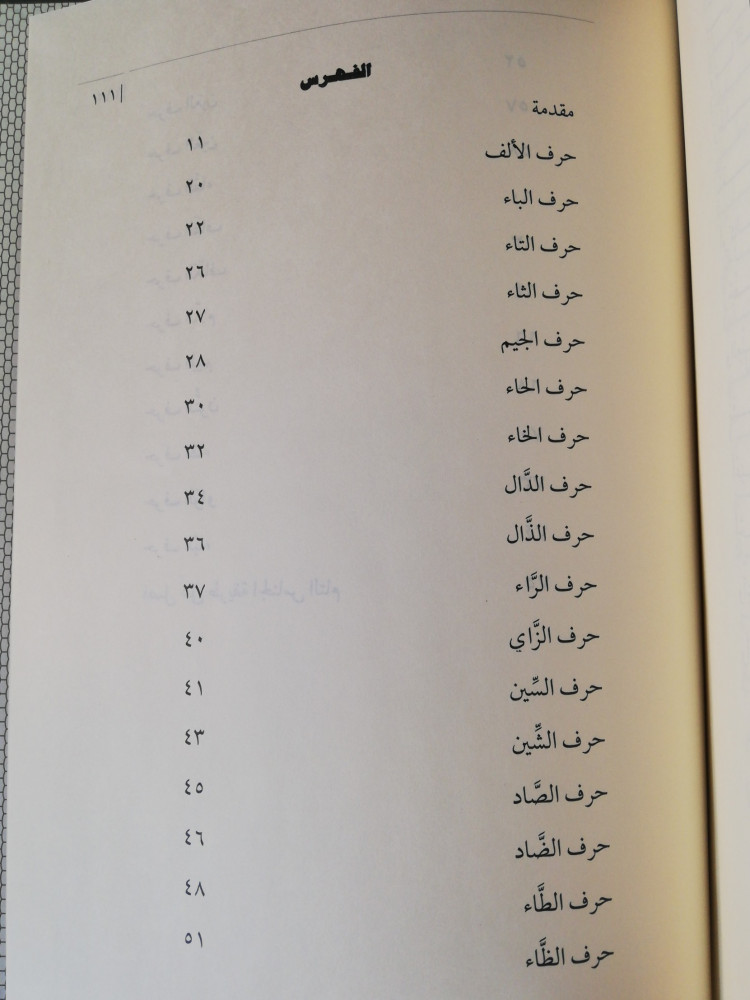 ١١١/
الفهرس
مقدمة ١١
حرف الألف ٢٠
حرف الباء ٢٢
حرف التاء ٢٦
حرف الثاء ٢٧
حرف الجيم ٢٨
حرف الحاء ٣٠
حرف الخاء ٣٢
حرف الدَّال ٣٤
حرف الذَّال ٣٦
حرف الرَّاء ٣٧
حرف الزَّاي ٤٠
حرف السِّين ٤١
حرف الشِّين ٤٣
حرف الصَّاد ٤٥
حرف الضَّاد ٤٦
حرف الطَّاء ٤٨
حرف الظَّاء ٥١